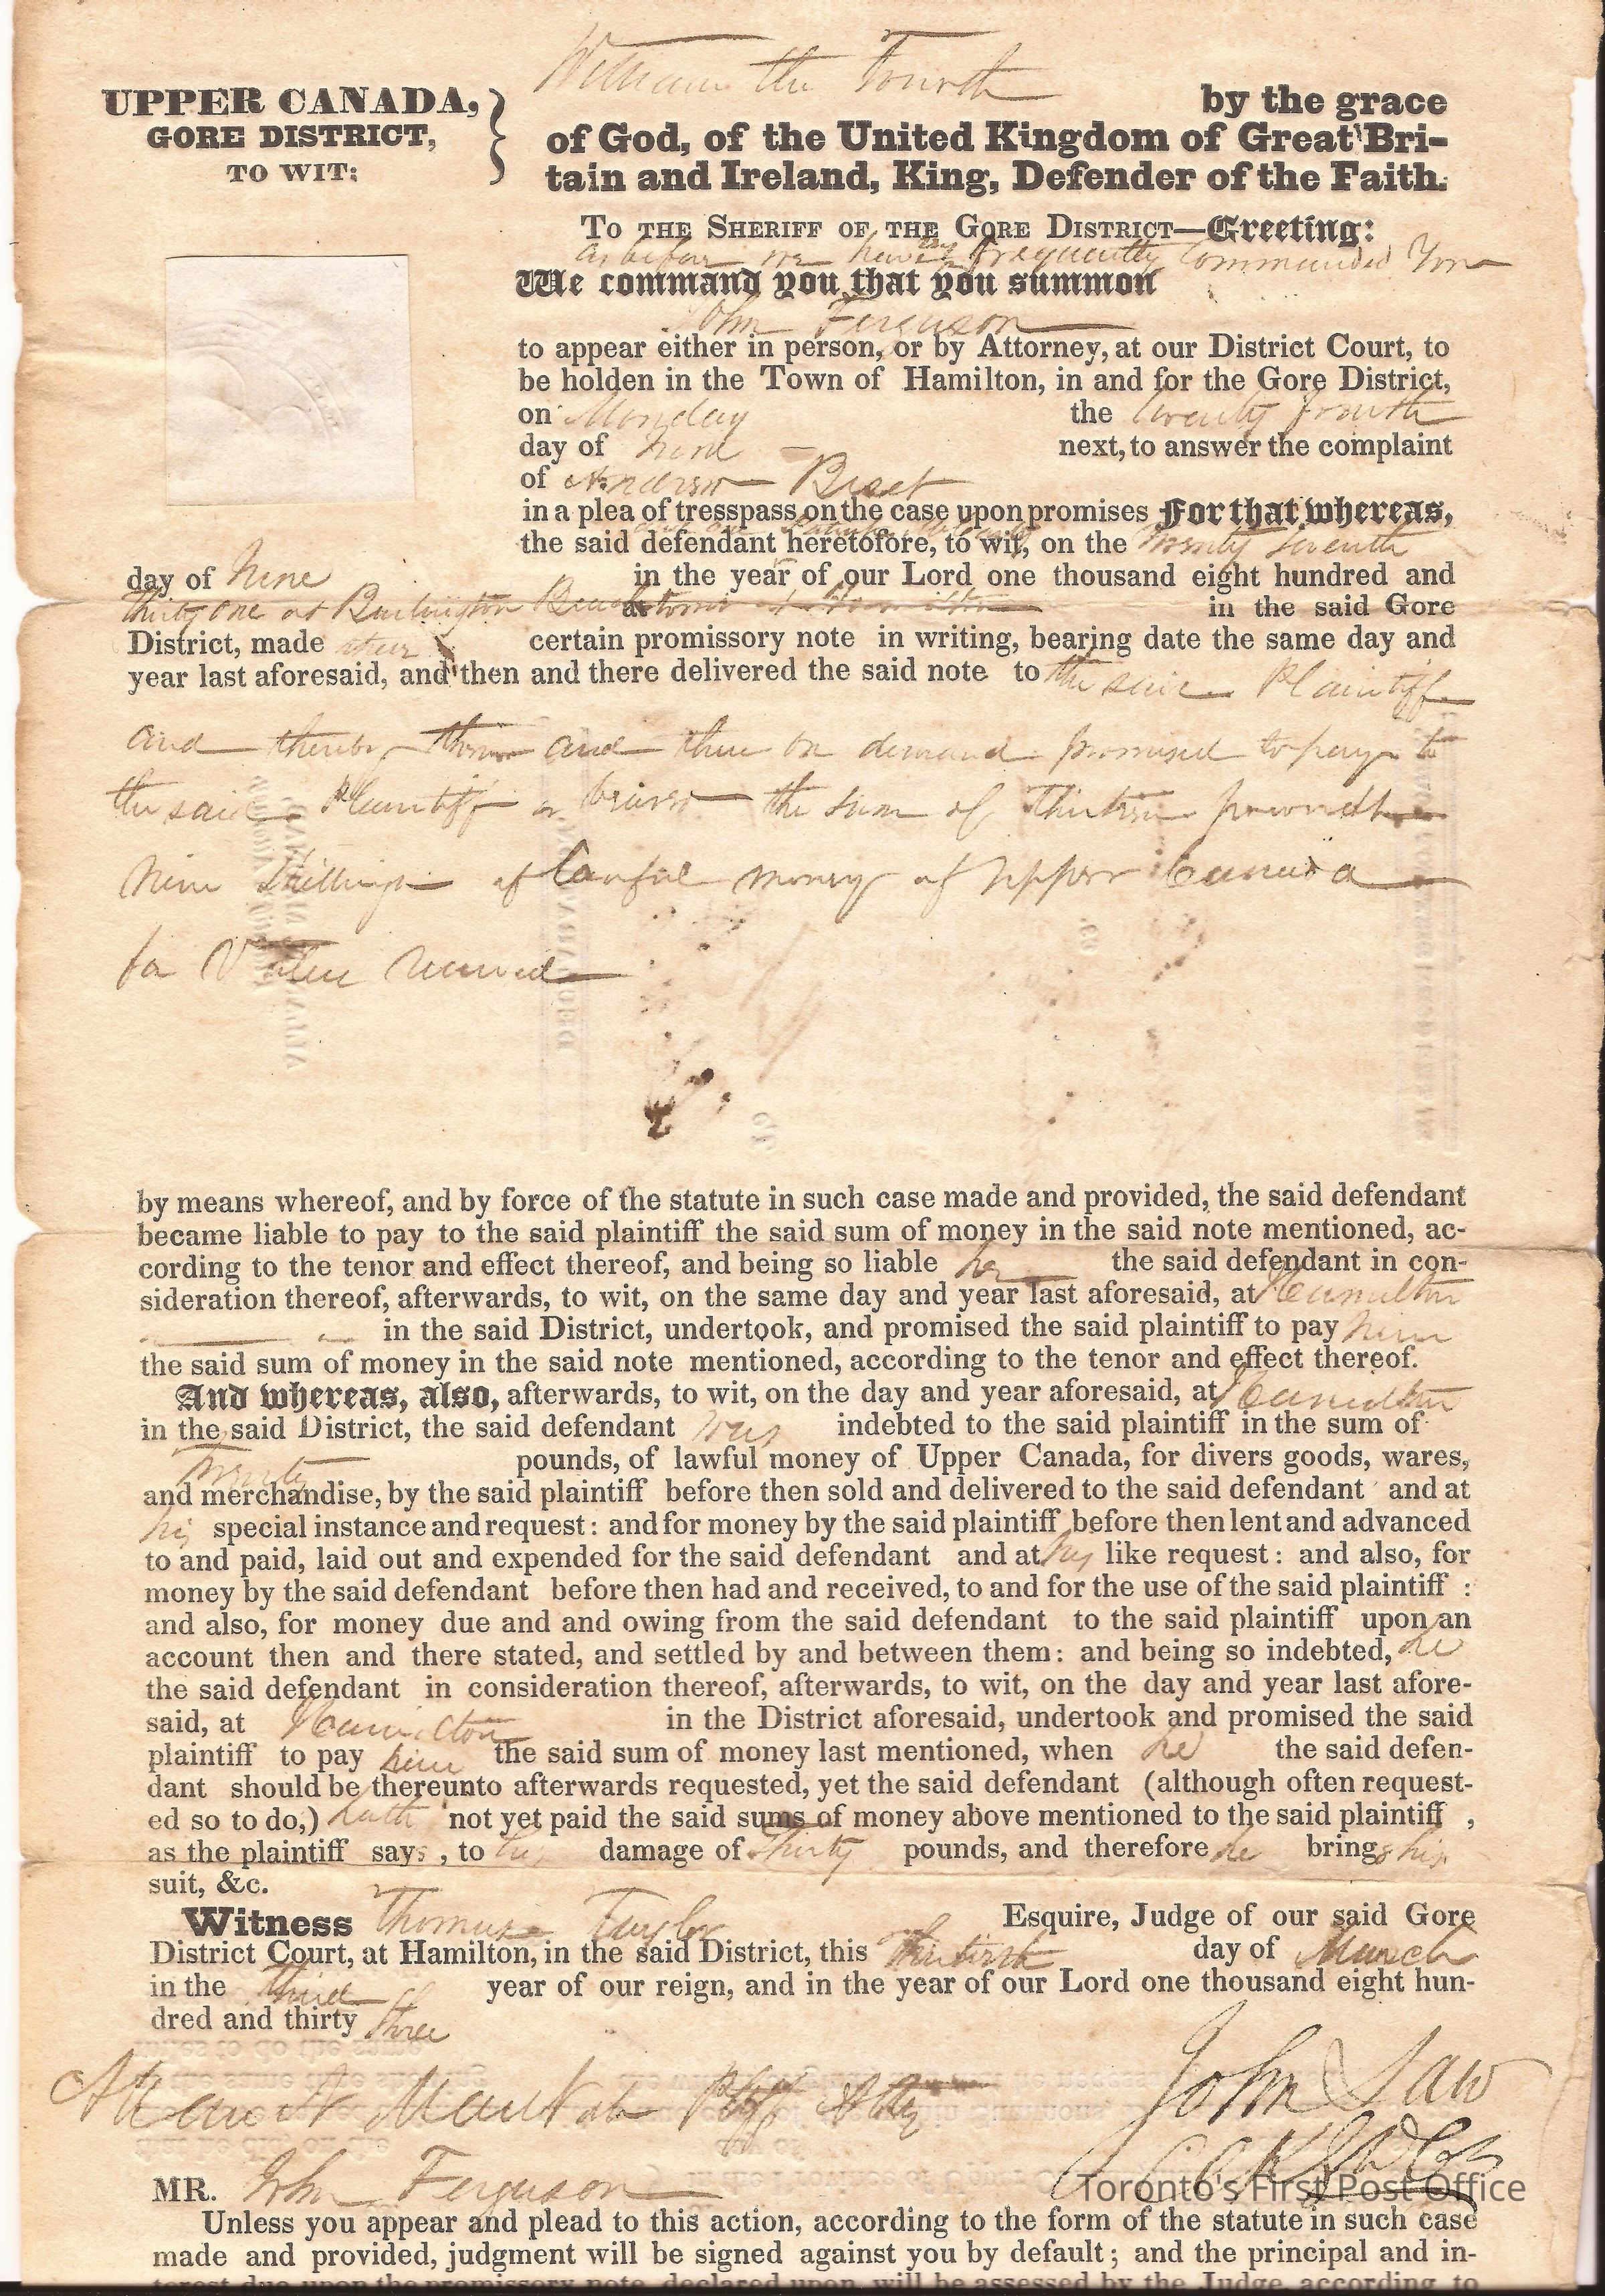 William the Fourth
UPPER CANADA,
GORE DISTRICT,
TO WIT:
by the grace
of God, of the United Kingdom of Great Bri-
tain and Ireland, King, Defender of the Faith.
To the Sheriff of the Gore District—Greeting:
as before we have frequently Commanded You
We command you that you summon
John Ferguson
to appear either in person, or by Attorney, at our District Court, to
be holden in the Town of Hamilton, in and for the Gore District,
on Monday the twenty fourth
day of June next, to answer the complaint
of Andrew Bisset
in a plea of tresspass on the case upon promises For that whereas,
the said defendant heretofore, to wit, on the twenty seventh
day of June in the year of our Lord one thousand eight hundred and
thirty one at Burlington Beach in the said Gore
District, made certain promissory note in writing, bearing date the same day and
year last aforesaid, and then and there delivered the said note to the said Plaintiff
and thereby then and there on demand promised to pay to
the said Plaintiff or bearer the sum of Thirteen pounds
nine Shillings of lawful money of Upper Canada
for Value received
by means whereof, and by force of the statute in such case made and provided, the said defendant
became liable to pay to the said plaintiff the said sum of money in the said note mentioned, ac-
cording to the tenor and effect thereof, and being so liable he the said defendant in con-
sideration thereof, afterwards, to wit, on the same day and year last aforesaid, at Hamilton
in the said District, undertook, and promised the said plaintiff to pay him
the said sum of money in the said note mentioned, according to the tenor and effect thereof.
And whereas, also, afterwards, to wit, on the day and year aforesaid, at Hamilton
in the said District, the said defendant was indebted to the said plaintiff in the sum of
Twenty pounds, of lawful money of Upper Canada, for divers goods, wares,
and merchandise, by the said plaintiff before then sold and delivered to the said defendant and at
his special instance and request: and for money by the said plaintiff before then lent and advanced
to and paid, laid out and expended for the said defendant and at his like request: and also, for
money by the said defendant before then had and received, to and for the use of the said plaintiff :
and also, for money due and and owing from the said defendant to the said plaintiff upon an
account then and there stated, and settled by and between them: and being so indebted, he
the said defendant in consideration thereof, afterwards, to wit, on the day and year last afore-
said, at Hamilton in the District aforesaid, undertook and promised the said
plaintiff to pay him the said sum of money last mentioned, when he the said defen-
dant should be thereunto afterwards requested, yet the said defendant (although often request-
ed so to do,) hath not yet paid the said sums of money above mentioned to the said plaintiff ,
as the plaintiff says , to his damage of Thirty pounds, and therefore he brings his
suit, &c.
Witness Thomas Taylor Esquire, Judge of our said Gore
District Court, at Hamilton, in the said District, this day of March
in the third year of our reign, and in the year of our Lord one thousand eight hun-
dred and thirty three
Allan N MacNab Plff Atty
John Law
MR. John Ferguson
Toronto's First Post Office
Unless you appear and plead to this action, according to the form of the statute in such case
made and provided, judgment will be signed against you by default; and the principal and in-
terest due upon the promissory note declared upon, will be assessed by the Judge, according to